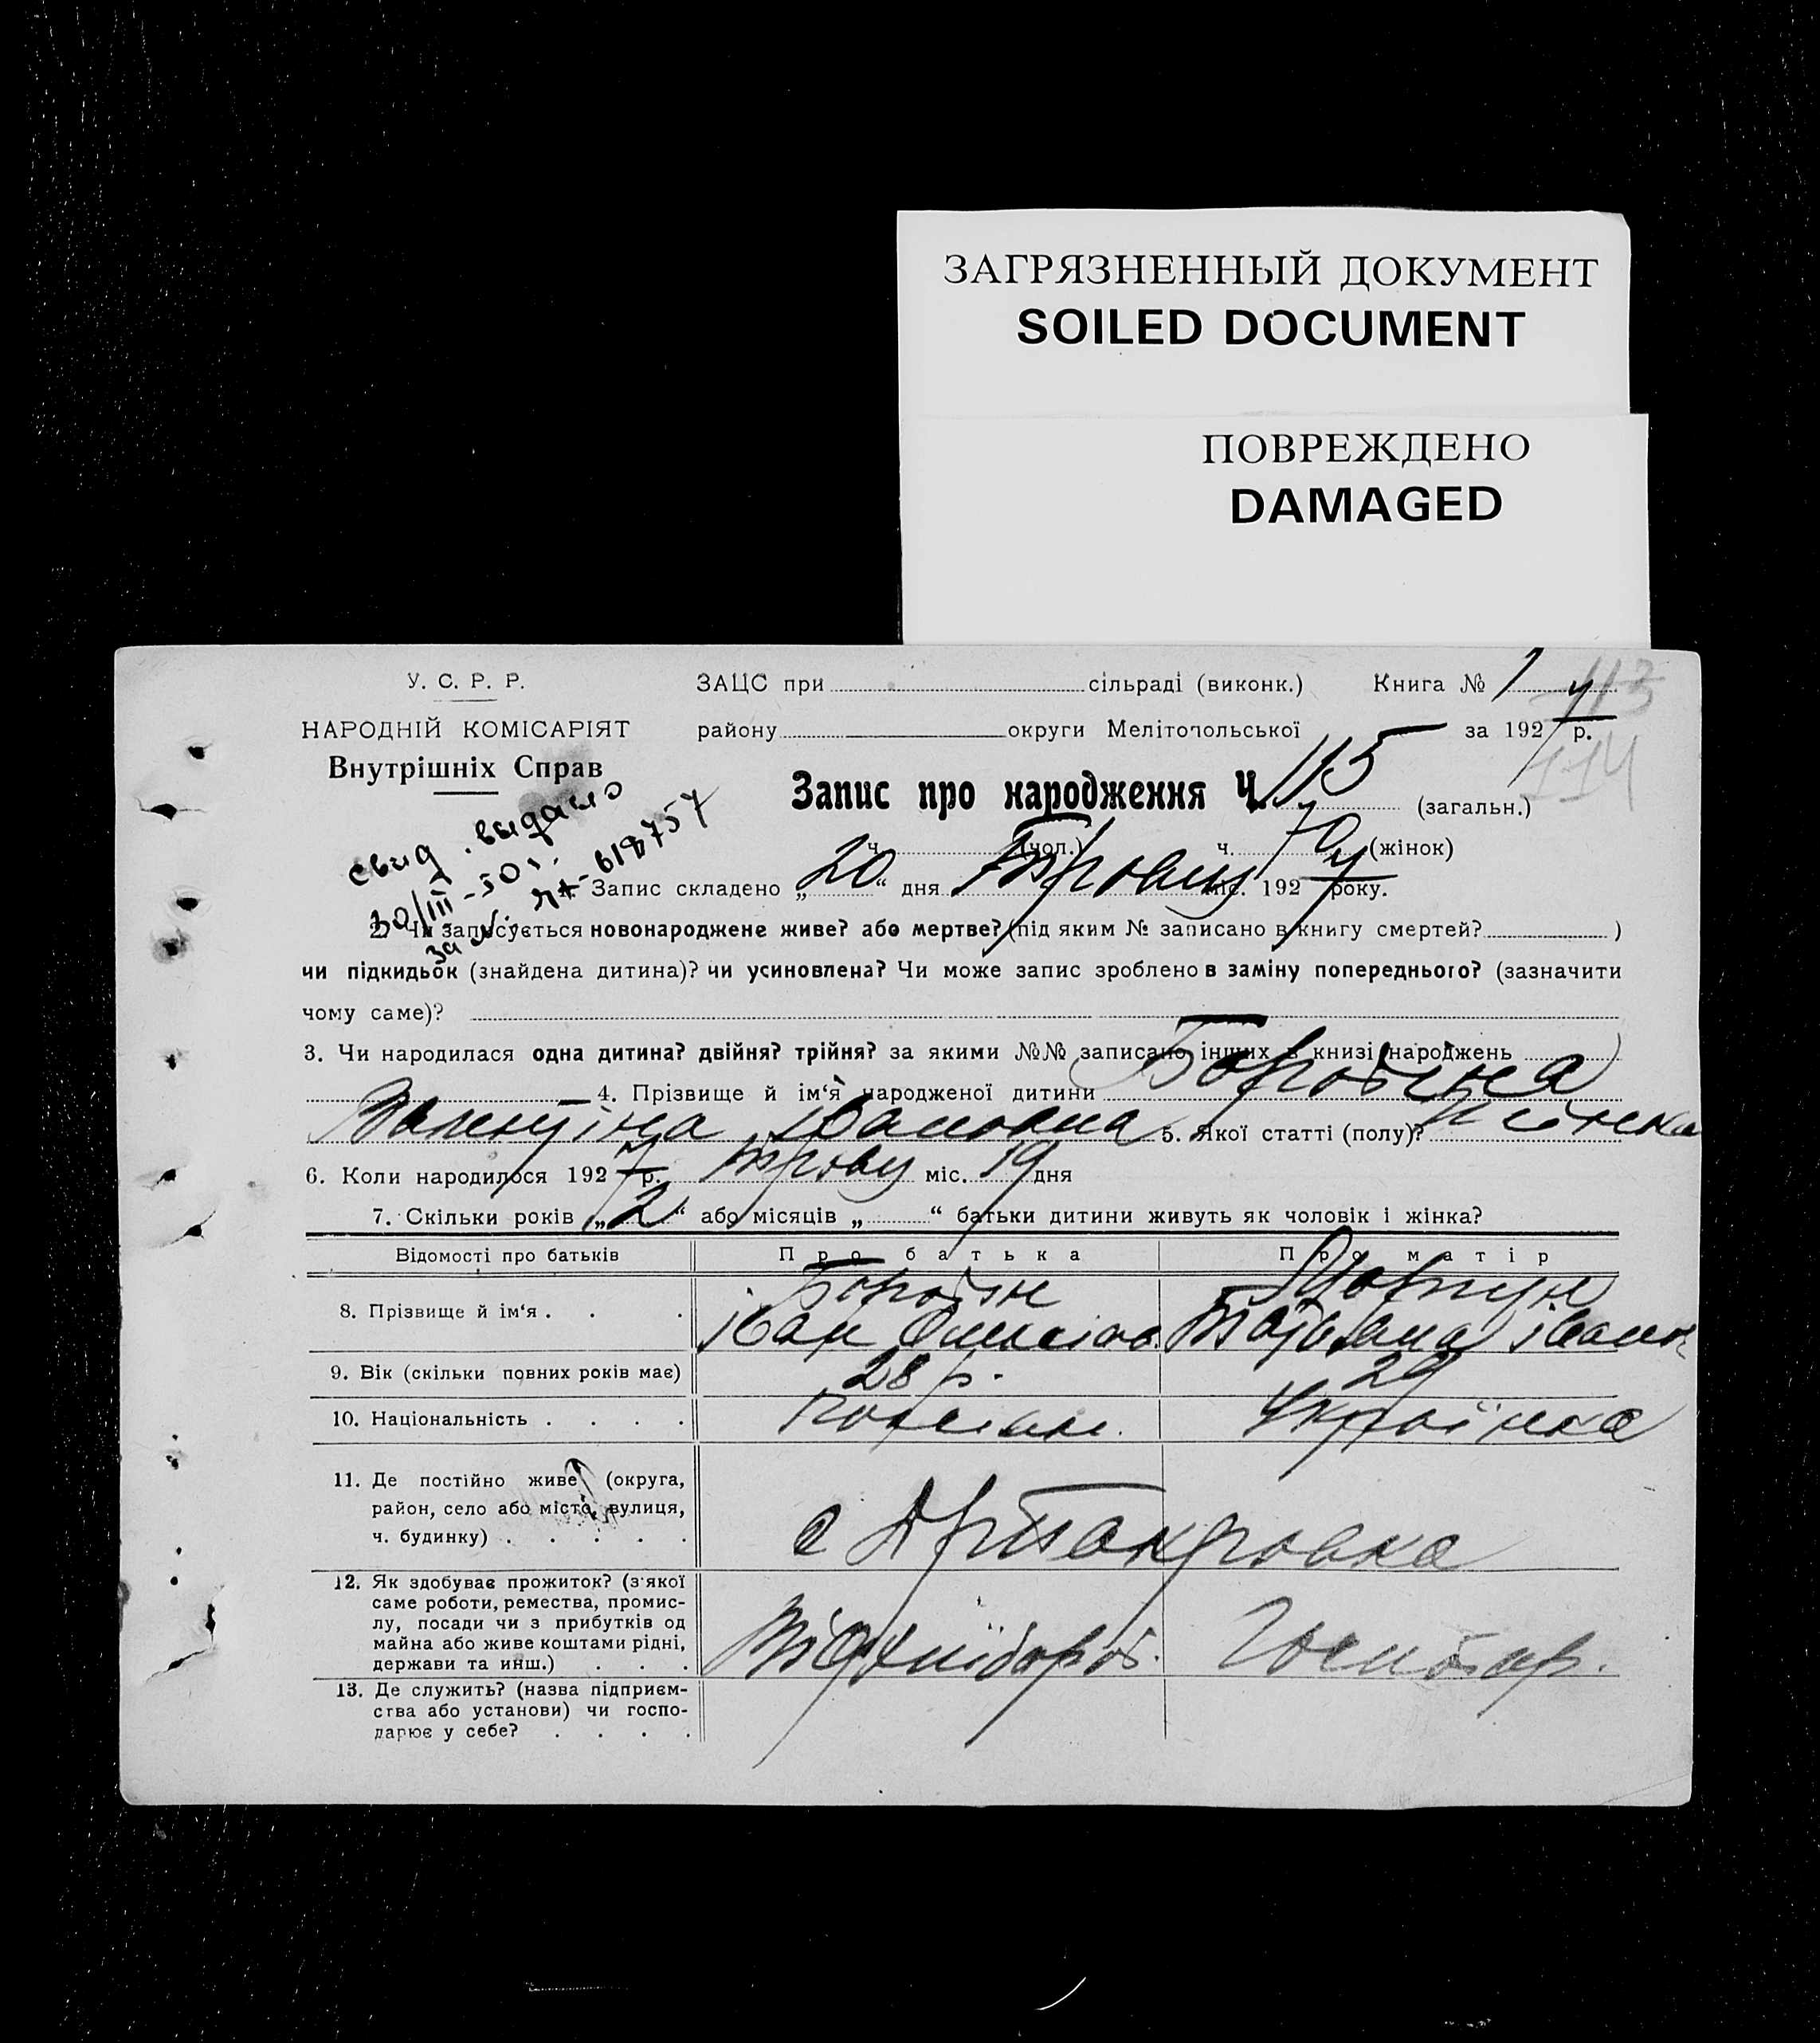 ЗАГРЯЗНЕННЫЙ ДОКУМЕНТ
SOILED DOCUMENT
ПОВРЕЖДЕНО
DAMAGED
У. С. Р. Р.
НАРОДНІЙ КОМІСАРІЯТ
Внутрішніх Справ
свид. выдано
30/III-50г.
за №
618757
ЗАЦС при сільраді (виконк.) Книга № 1 113
району округи Мелітопольської за 1927 р.
114
Запис про народження Ч. 115 (загальн.)
ч. (чол.) ч. 70 (жінок)
1. Запис складено „20“ дня Травня міс. 1927 року.
2. Чи записується новонароджене живе? або мертве? (під яким № записано в книгу смертей? )
чи підкидьок (знайдена дитина)? чи усиновлена? Чи може запис зроблено в заміну попереднього? (зазначити
чому саме)?
3. Чи народилася одна дитина? двійня? трійня? за якими №№ записано інших в книзі народжень
4. Прізвище й ім‘я народженої дитини
Валентіна Івановна 5. Якої статті (полу)? жінка
6. Коли народилося 1927 р. Траву міс. 19 дня
7. Скільки років „2“ або місяців „ “ батьки дитини живуть як чоловік і жінка?
Відомості про батьків Про батька Про матір
8. Прізвище й ім‘я . . .
Іван
9. Вік (скільки повних років має) 28 р. 29
10. Національність . . . . Українка
11. Де постійно живе (округа,
район, село або місто, вулиця,
ч. будинку) . . . . .
12. Як здобуває прожиток? (з якої
саме роботи, ремества, промис-
лу, посади чи з прибутків од
майна або живе коштами рідні,
держави та инш.) . . .
13. Де служить? (назва підприєм-
ства або установи) чи госпо-
дарює у себе? . . . .